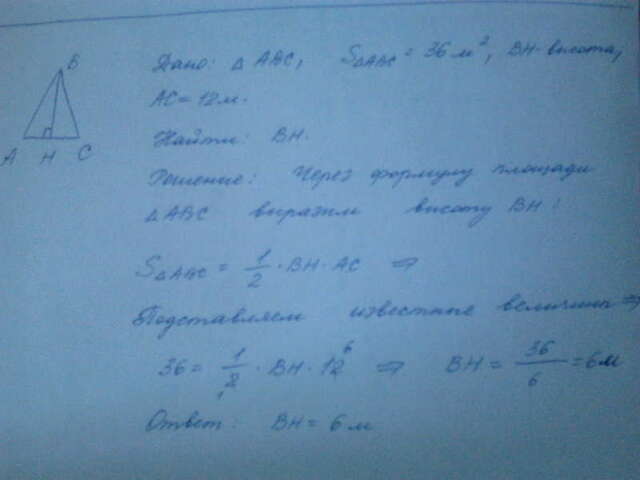 B
A H C
Дано: △ABC, S△ABC = 36 м², BH - высота,
AC = 12 м.
Найти: BH.
Решение: Через формулу площади
△ABC выразим высоту BH:
S△ABC = 1/2 · BH · AC ⇒
Подставляем известные величины ⇒
36 = 1/2 · BH · 12 6 ⇒ BH = 36/6 = 6 м
1
Ответ: BH = 6 м